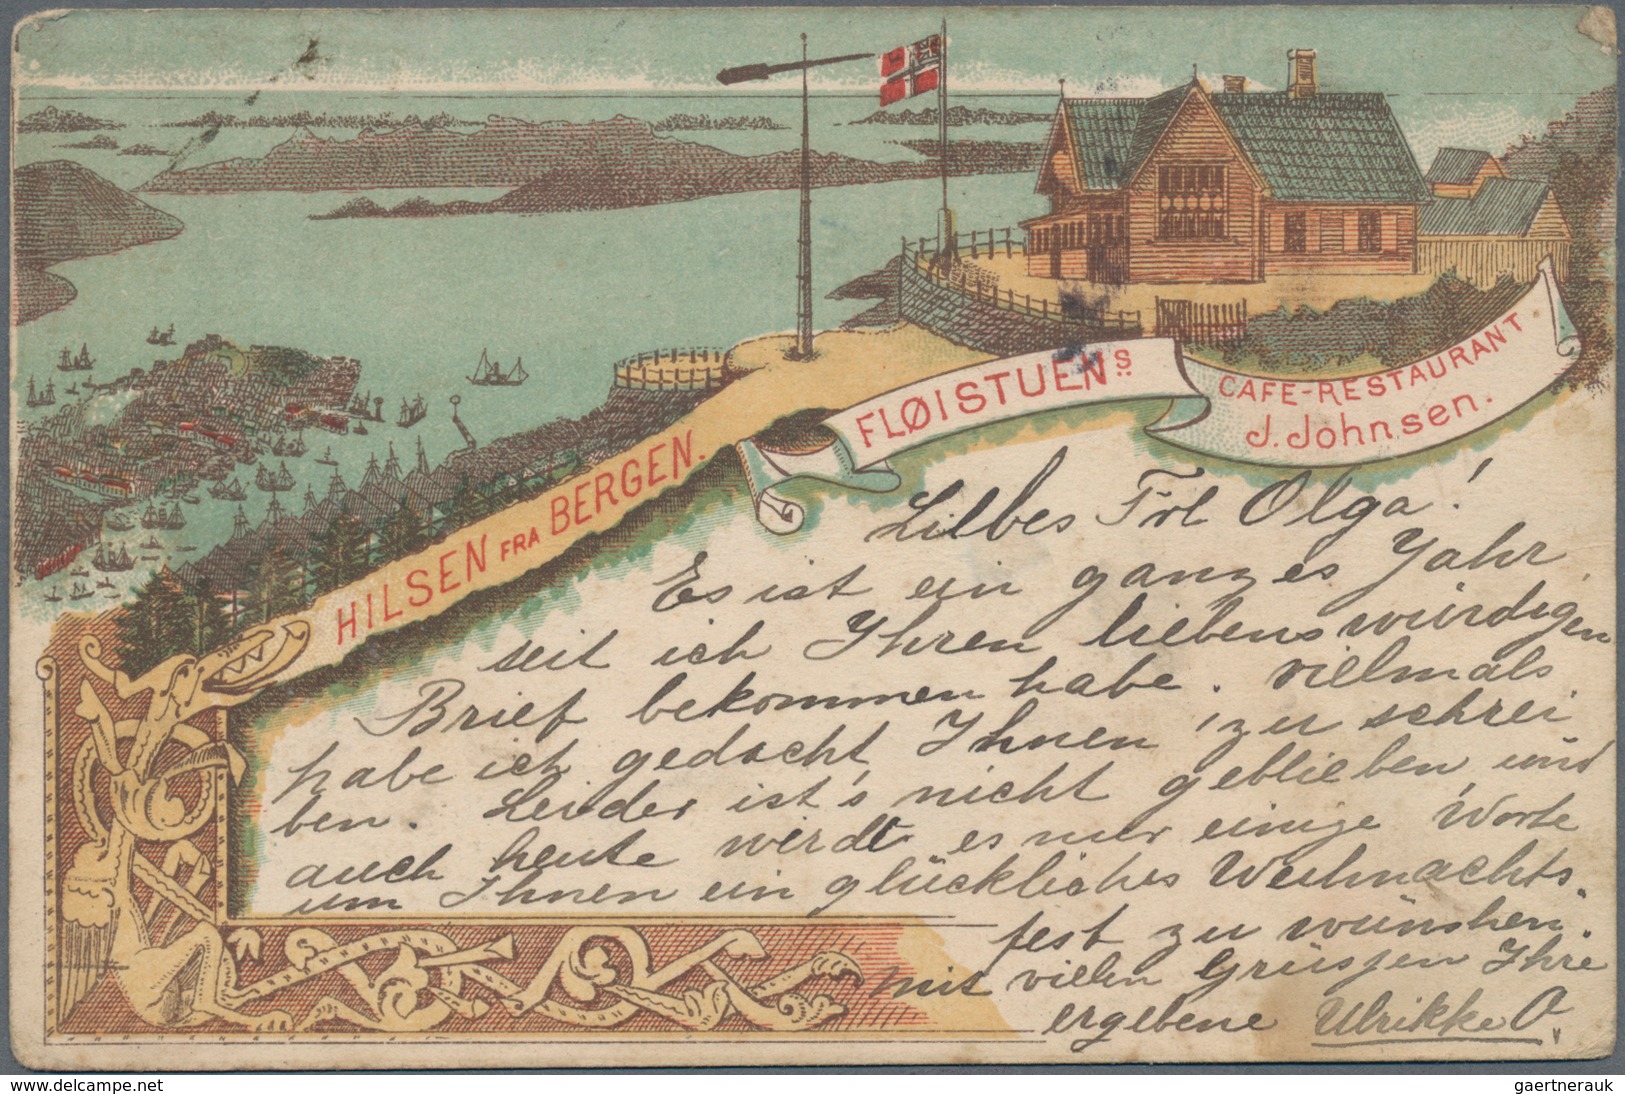 HILSEN FRA BERGEN.
FLØISTUENS
CAFE-RESTAURANT
J. Johnsen.
Lilbes Frl Olga!
Es ist ein ganzes Jahr,
seit ich Ihren liebenswürdigen
Brief bekommen habe. vielmals
habe ich gedacht Ihnen zu schrei
ben. Leider ist's nicht geblieben und
auch heute werdt es nur einige Worte
um Ihnen ein glückliches Weihnachts-
fest zu wünshen.
mit vielen Grüssen Ihre
ergebene Ulrikke O.
delcampe.net
gaertnerauk